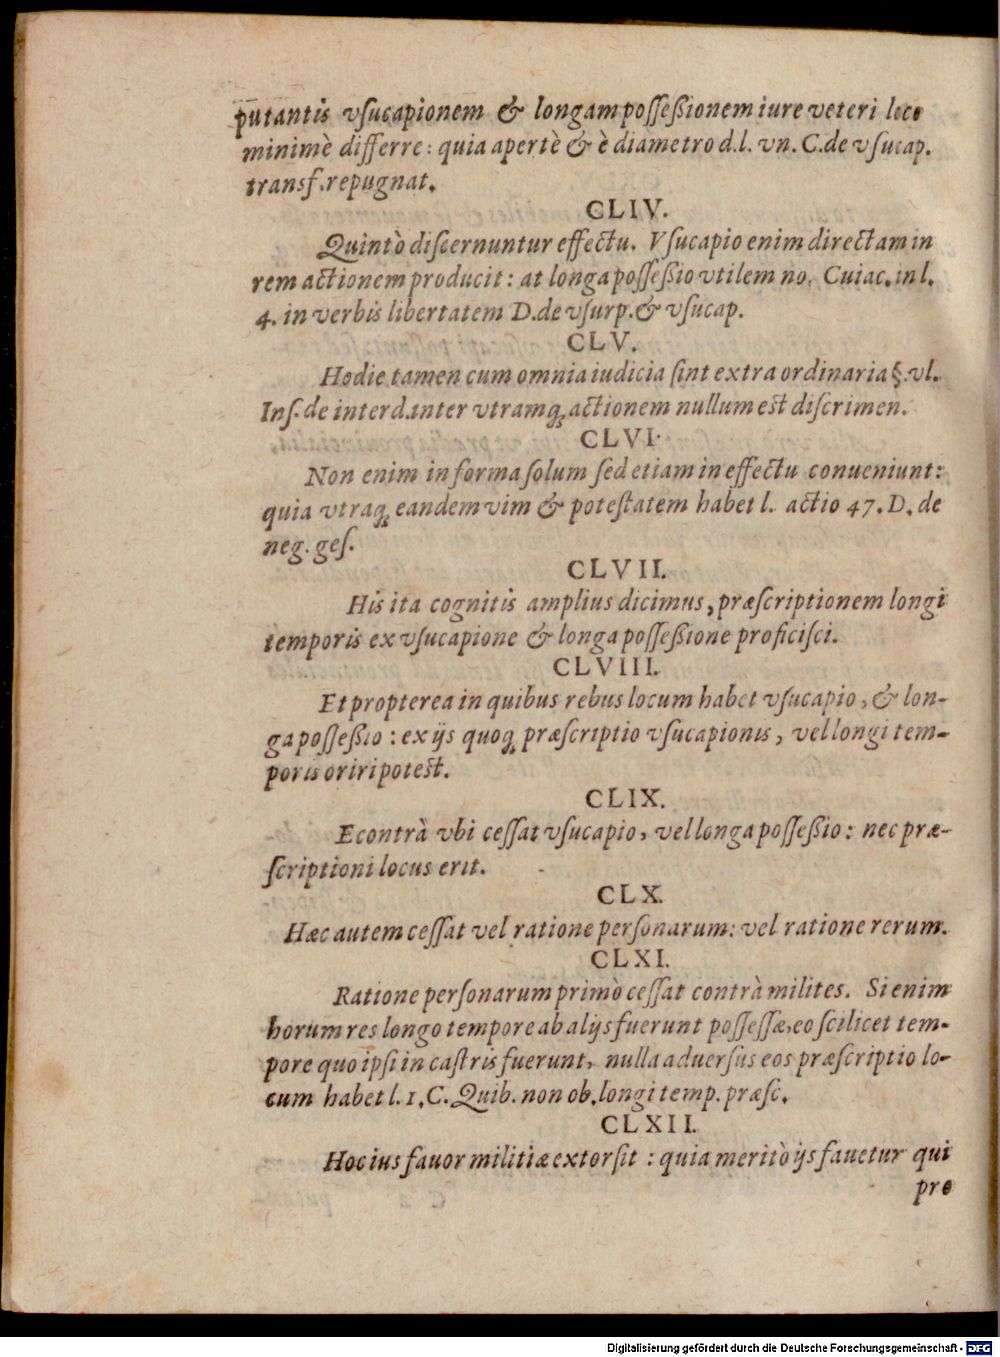 putantis vſucapionem & longam poſſeßionem iure veteri loco
minimè differre: quia apertè & è diametro d.l. vn. C. de vſucap.
transf. repugnat.
CLIV.
Quintò diſcernuntur effectu. Vſucapio enim directam in
rem actionem producit: at longa poſſeßio vtilem no. Cuiac. in l.
4. in verbis libertatem D. de vſurp. & vſucap.
CLV.
Hodie tamen cum omnia iudicia ſint extra ordinaria §. vl.
Inſ. de interd. inter vtramq; actionem nullum est diſcrimen.
CLVI.
Non enim in forma ſolum ſed etiam in effectu conueniunt:
quia vtraq; eandem vim & poteſtatem habet l. actio 47. D. de
neg. geſ.
CLVII.
His ita cognitis amplius dicimus, præſcriptionem longi
temporis ex vſucapione & longa poſſeßione proficiſci.
CLVIII.
Et propterea in quibus rebus locum habet vſucapio, & lon-
ga poſſeßio: ex ijs quoq; præſcriptio vſucapionis, vel longi tem-
poris oriri potest.
CLIX.
Econtrà vbi ceſſat vſucapio, vel longa poſſeßio: nec præ-
ſcriptioni locus erit.
CLX.
Hæc autem ceſſat vel ratione perſonarum: vel ratione rerum.
CLXI.
Ratione perſonarum primò ceſſat contrà milites. Si enim
horum res longo tempore ab alijs fuerunt poſſeſſæ, eo ſcilicet tem-
pore quo ipſi in caſtris fuerunt, nulla aduerſus eos præſcriptio lo-
cum habet l. 1. C. Quib. non ob. longi temp. præſc.
CLXII.
Hoc ius fauor militiæ extorſit: quia meritò ijs fauetur qui
pro
Digitalisierung gefördert durch die Deutsche Forschungsgemeinschaft - DFG